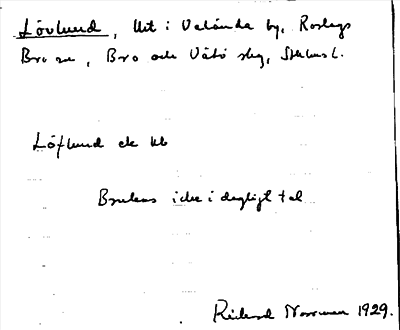 Lövlund, Ut i Valånda by, Roslags
Bro sn, Bro och Vätö slg, Sthlms l.
Löflund ek kb
Brukas icke i dagligt tal
Rickard Norrman 1929.